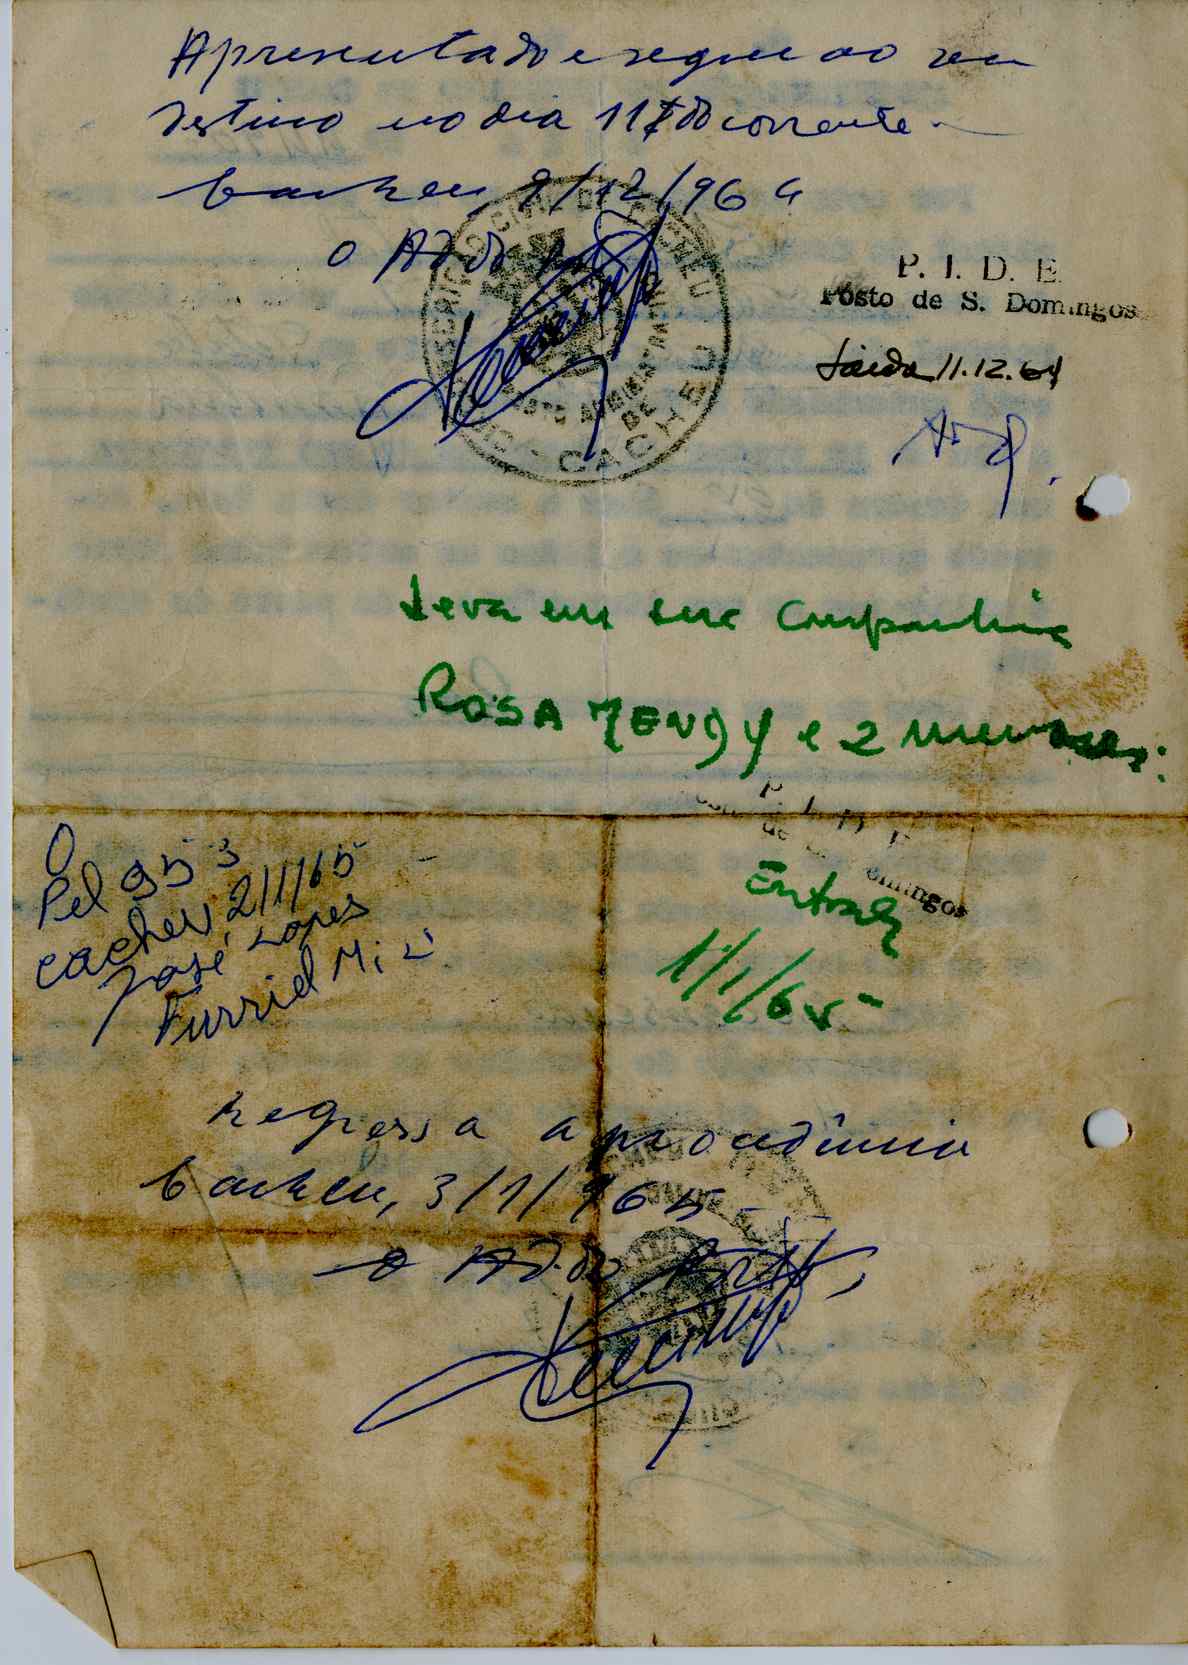 Apresentado e segue ao seu
destino no dia 11 do corrente.
Cacheu, 9/12/964
O Adº do Posto
CACHEU
POSTO ADMINISTRATIVO DE CACHEU
P. I. D. E.
Posto de S. Domingos
Saída 11.12.64
Leva em sua companhia
ROSA MENDY e 2 menores.
P. I. D. E.
de S. Domingos
Entrada
1/1/65
O
Pel 953
Cacheu 2/1/65
José Lopes
Furriel Mil
Regressa a procedência
Cacheu, 3/1/965
O Adº do Posto